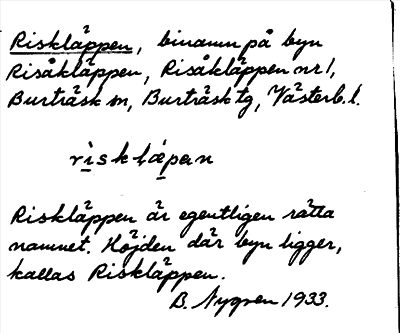 Riskläppen, binamn på byn
Risåkläppen, Risåkläppen nr 1,
Burträsk sn, Burträsk tg, Västerb. l.
rìsklä̀pen
Riskläppen är egentligen rätta
namnet. Höjden där byn ligger,
kallas Riskläppen.
B. Nygren 1933.